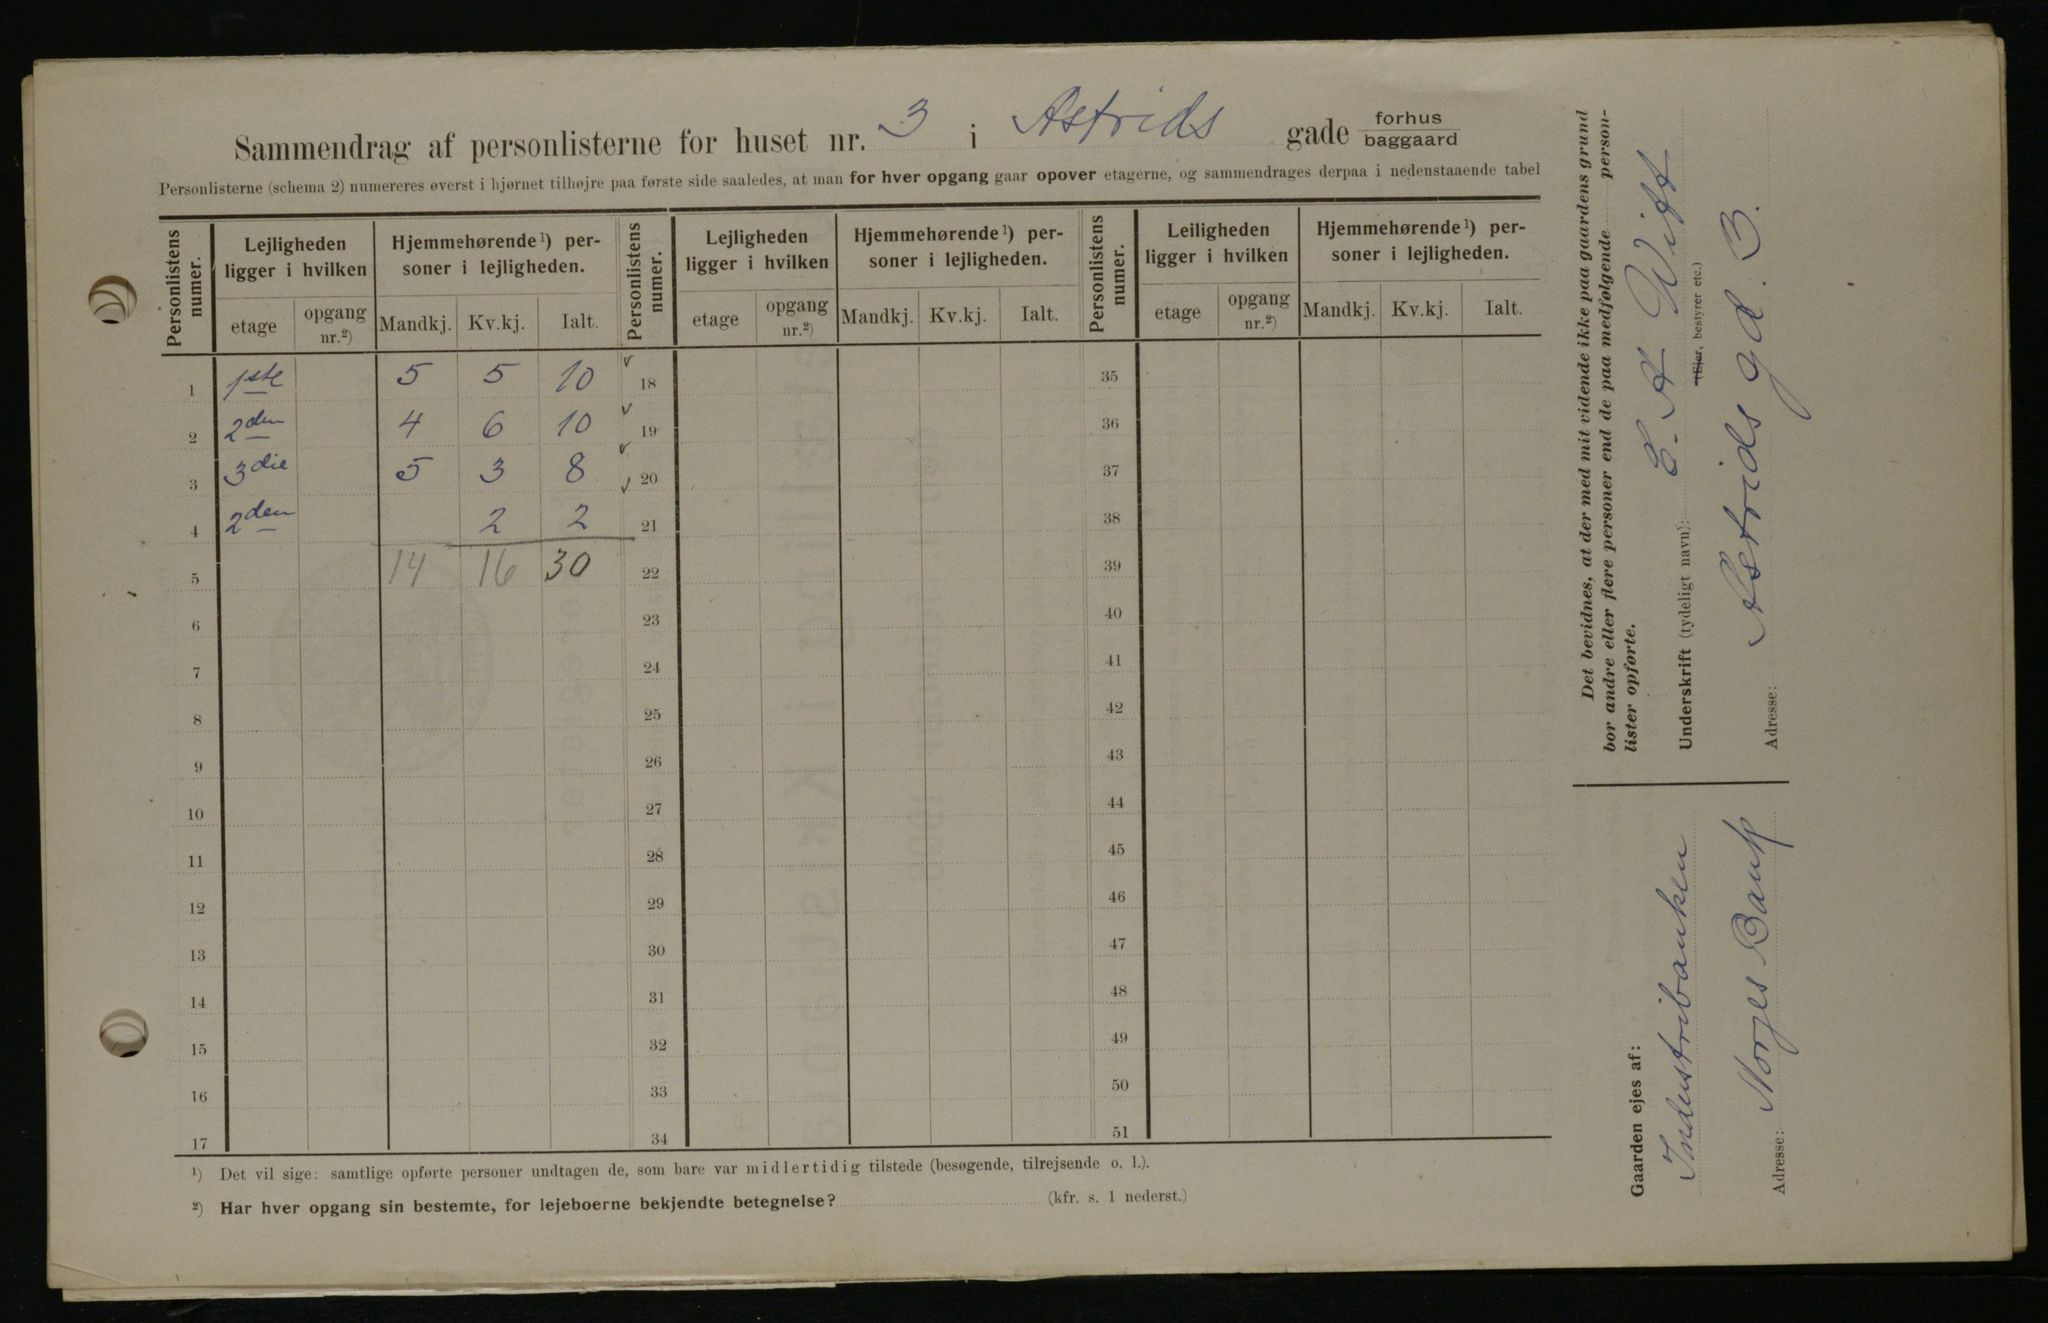 Sammendrag af personlisterne for huset nr. 3 i Astrids gade forhus
baggaard
Personlisterne (schema 2) numereres øverst i hjørnet tilhøjre paa første side saaledes, at man for hver opgang gaar opover etagerne, og sammendrages derpaa i nedenstaaende tabel
Personlistens numer. Lejligheden ligger i hvilken Hjemmehørende ¹) personer i lejligheden. Personlistens numer. Lejligheden ligger i hvilken Hjemmehørende ¹) personer i lejligheden. Personlistens numer. Leiligheden ligger i hvilken Hjemmehørende ¹) personer i lejligheden.
etage opgang nr.²) Mandkj. Kv.kj. Ialt. etage opgang nr.²) Mandkj. Kv.kj. Ialt. etage opgang nr.²) Mandkj. Kv.kj. Ialt.
1 1ste 5 5 10 18 35
2 2den 4 6 10 19 36
3 3die 5 3 8 20 37
4 2den 2 2 21 38
5 14 16 30 22 39
6 23 40
7 24 41
8 25 42
9 26 43
10 27 44
11 28 45
12 29 46
13 30 47
14 31 48
15 32 49
16 33 50
17 34 51
¹) Det vil sige: samtlige opførte personer undtagen de, som bare var midlertidig tilstede (besøgende, tilrejsende o. l.).
²) Har hver opgang sin bestemte, for lejeboerne bekjendte betegnelse? (kfr. s. 1 nederst.)
Det bevidnes, at der med mit vidende ikke paa gaardens grund
bor andre eller flere personer end de paa medfølgende personlister
opførte.
Underskrift (tydeligt navn): E. A Witt
(Ejer, bestyrer etc.)
Adresse: Astrids gd. 3.
Gaarden ejes af:
Industribanken
Adresse: Norges Bank